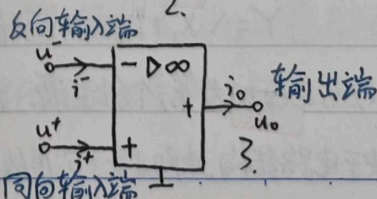 2.
反向输入端
u⁻
i⁻
- ▷∞
+
i₀
输出端
u₀
u⁺
i⁺
+
3.
同向输入端